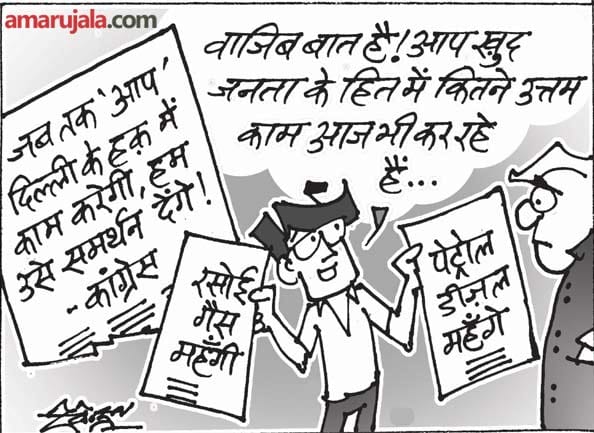 amarujala.com
जब तक 'आप'
दिल्ली के हक़ में
काम करेगी, हम
उसे समर्थन देंगे!
- कांग्रेस
वाजिब बात है! आप ख़ुद
जनता के हित में कितने उत्तम
काम आज भी कर रहे
हैं...
रसोई
गैस
महँगी
पेट्रोल
डीज़ल
महँगे